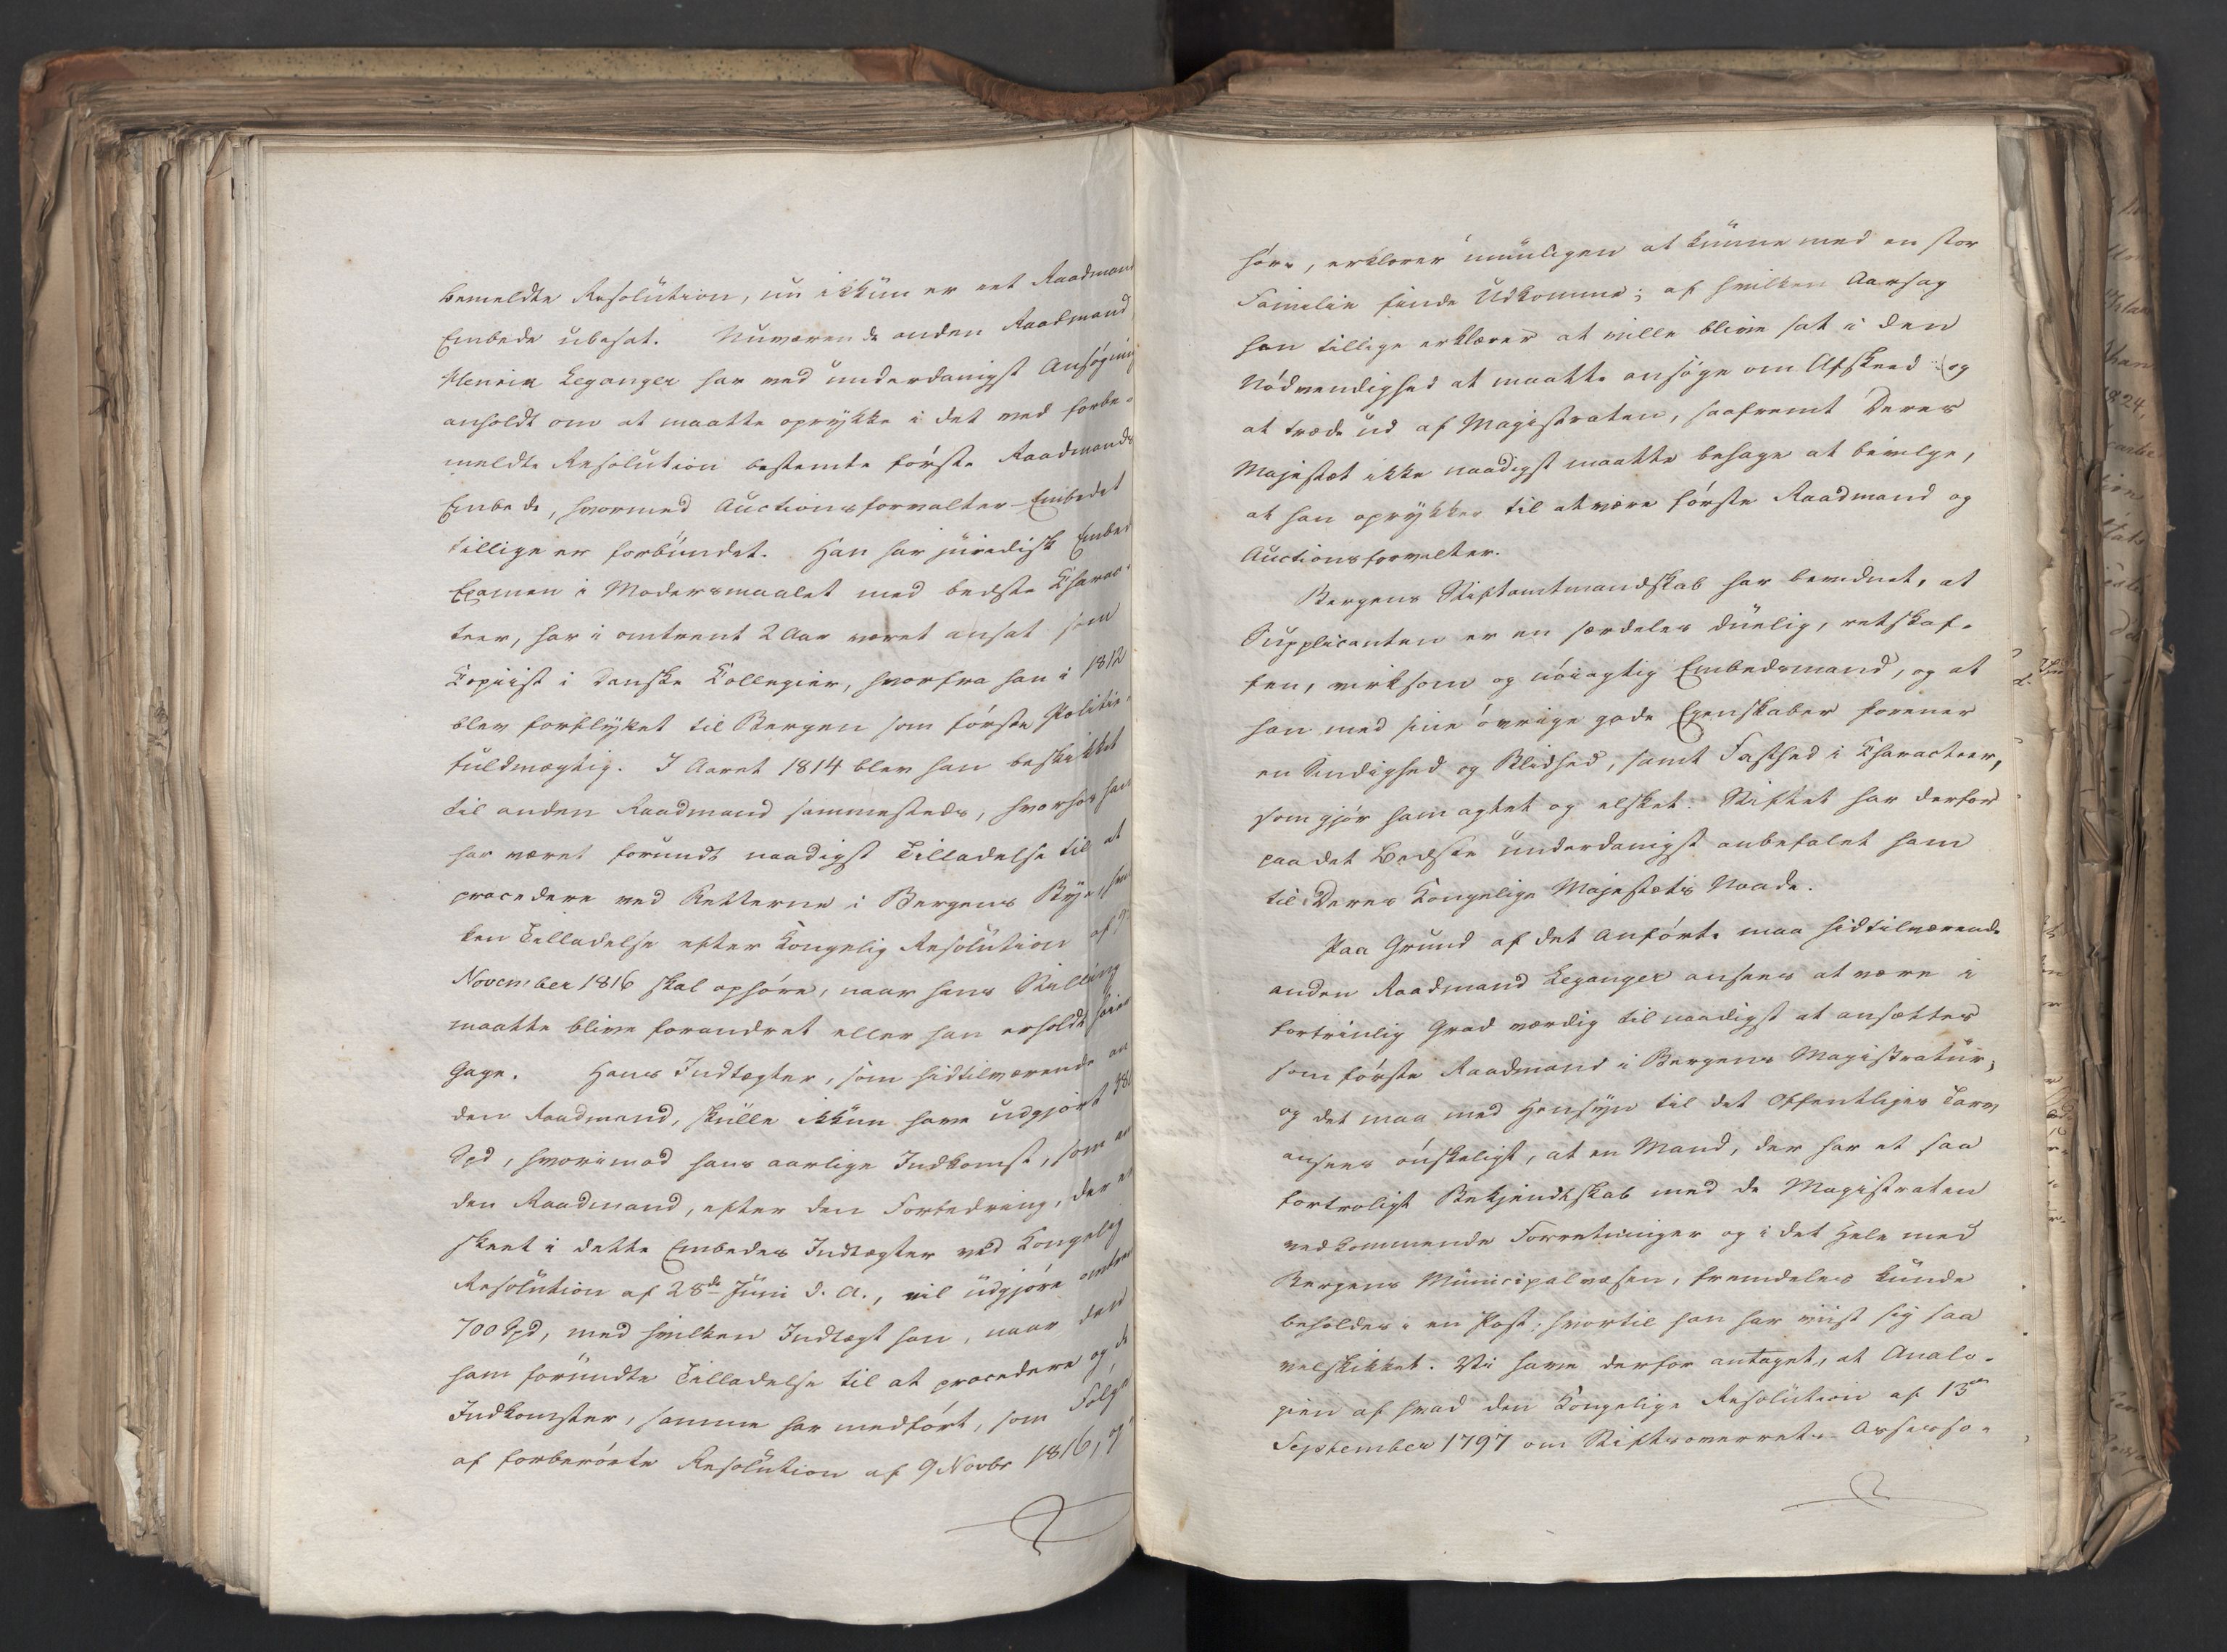 bemeldte Resolution, nu ikkun er eet Raadmand
Embede ubesat. Nuværende anden Raadmand
Henrik Leganger har ved underdanigst Ansøgning
anholdt om at maatte oprykke i det ved forbe-
meldte Resolution bestemte første Raadmands
Embede, hvormed Auctionsforvalter-Embedet
tillige er forbundet. Han har juridisk Embeds
Examen i Modersmaalet med bedste Charac-
teer, har i omtrent 2 Aar været ansat som
Copiist i danske Collegier, hvorfra han i 1812
blev forflyttet til Bergen som første Politie-
fuldmægtig. I Aaret 1814 blev han beskikket
til anden Raadmand sammesteds, hvorhos han
har været forundt naadigst Tilladelse til at
procedere ved Retterne i Bergens Bye, hvil
ken Tilladelse efter Kongelig Resolution af 9
November 1816 skal ophøre, naar hans Stilling
maatte blive forandret eller han erholdt høiere
Gage. Hans Indtægter, som hidtilværende an
den Raadmand, skulle ikkun have udgjort
Spd, hvorimod hans aarlige Indkomst, som an
den Raadmand, efter den Forbedring, der er
skeet i dette Embedes Indtægter ved Kongelig
Resolution af 28de Juni d. A., vil udgjøre omtrent
700 Spd, med hvilken Indtægt han, naar den
ham forundte Tilladelse til at procedere og de
Indkomster, samme har medført, som Følge
af forberørte Resolution af 9 Novbr 1816, op
høre, erklærer umuligen at kunne med en stor
Familie finde Udkomme; af hvilken Aarsag
han tillige erklærer at ville blive sat i den
Nødvendighed at maatte ansøge om Afskeed og
at træde ud af Magistraten, saafremt Deres
Majestæt ikke naadigst maatte behage at bevilge,
at han oprykker til at være første Raadmand og
Auctionsforvalter.
Bergens Stiftamtmandskab har bevidnet, at
Supplicanten er en særdeles duelig, retskaf-
fen, virksom og nøiagtig Embedsmand, og at
han med sine øvrige gode Egenskaber forener
en Sindighed og Blidhed, samt Fasthed i Characteer,
som gjør ham agtet og elsket. Stiftet har derfor
paa det Bedste underdanigst anbefalet ham
til Deres Kongelige Majestæts Naade.
Paa Grund af det Anførte maa hidtilværende
anden Raadmand Leganger ansees at være i
fortrinlig Grad værdig til naadigst at ansættes
som første Raadmand i Bergens Magistratur,
og det maa med Hensyn til det Offentliges Tarv
ansees ønskeligt, at en Mand, der har et saa
fortroligt Bekjendtskab med de Magistraten
vedkommende Forretninger og i det Hele med
Bergens Municipalvæsen, fremdeles kunde
beholdes i en Post, hvortil han har viist sig saa
velskikket. Vi have derfor antaget, at Analo-
gien af hvad den Kongelige Resolution af 13de
September 1797 om Stiftsoverrets-Assesso-